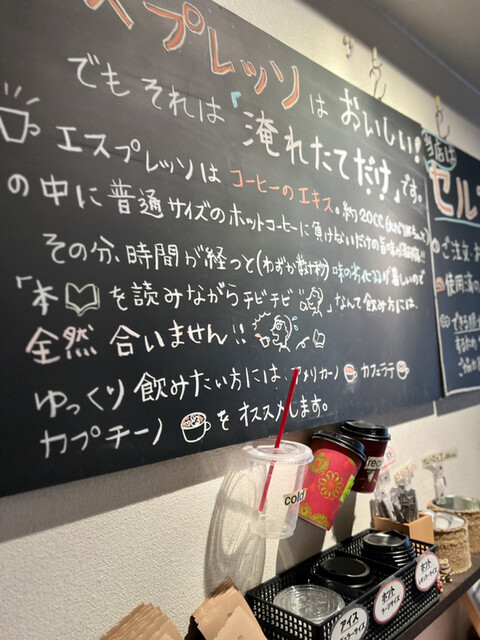 スプレッソはおいしい!
でもそれは「淹れたてだけ」です。
エスプレッソはコーヒーのエキス。約20cc
の中に普通サイズのホットコーヒーに負けないだけの旨味が
その分、時間が経つと(わずか数秒)味の劣化が著しいので
「本を読みながらチビチビ」なんて飲み方には、
全然合いません!!
ゆっくり飲みたい方には、カフェラテ
カプチーノをオススメします。
当店は
セル
ご注文
使用済の
cold
regu
アイス
ホット
ラージサイズ
ホット